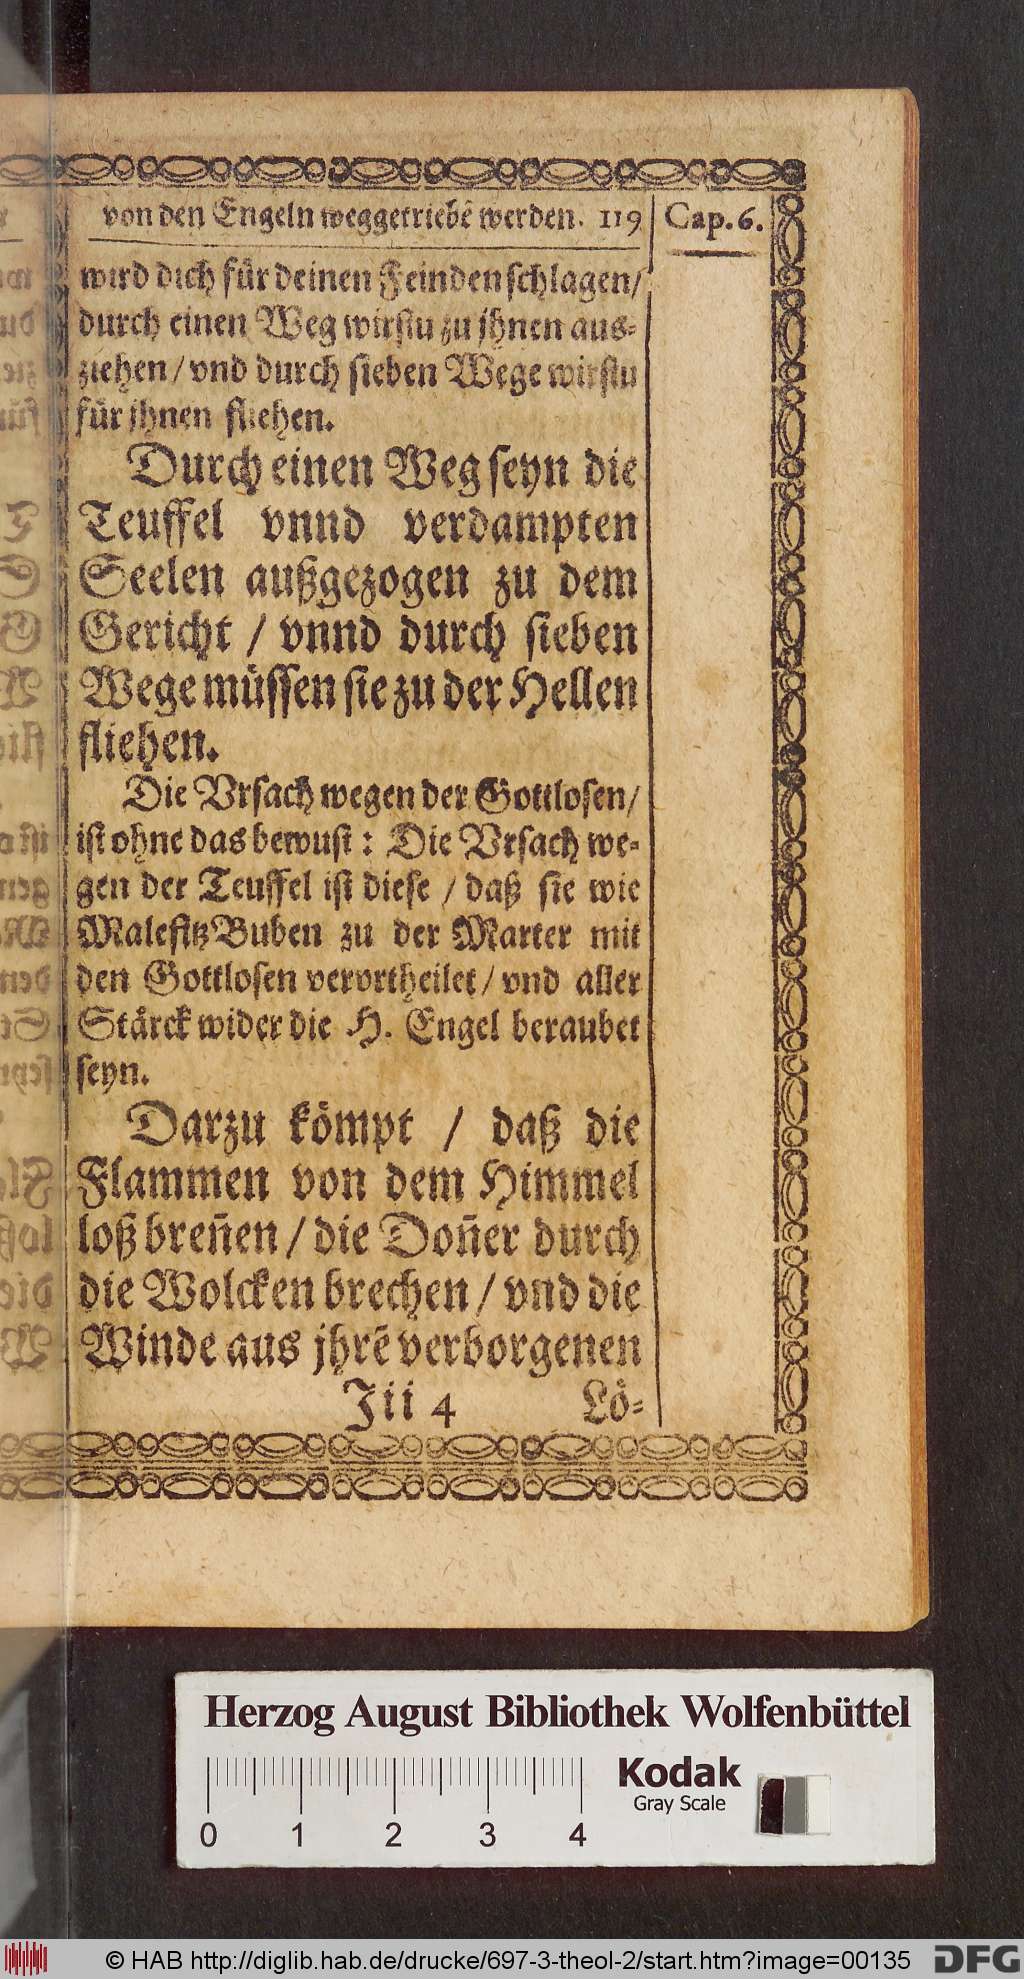 von den Engeln weggetriebẽ werden. 119 Cap. 6.
wird dich für deinen Feinden schlagen/
durch einen Weg wirstu zu jhnen aus-
ziehen / vnd durch sieben Wege wirstu
für jhnen fliehen.
Durch einen Weg seyn die
Teuffel vnnd verdampten
Seelen außgezogen zu dem
Gericht / vnnd durch sieben
Wege müssen sie zu der Hellen
fliehen.
Die Vrsach wegen der Gottlosen/
ist ohne das bewust : Die Vrsach we-
gen der Teuffel ist diese / daß sie wie
Malefitz Buben zu der Marter mit
den Gottlosen verortheilet / vnd aller
Stärck wider die H. Engel beraubet
seyn.
Darzu kömpt / daß die
Flammen von dem Himmel
loß breñen / die Doñer durch
die Wolcken brechen / vnd die
Winde aus jhrẽ verborgenen
Jii 4 Lö-
Herzog August Bibliothek Wolfenbüttel
Kodak
Gray Scale
0 1 2 3 4
© HAB http://diglib.hab.de/drucke/697-3-theol-2/start.htm?image=00135 DFG